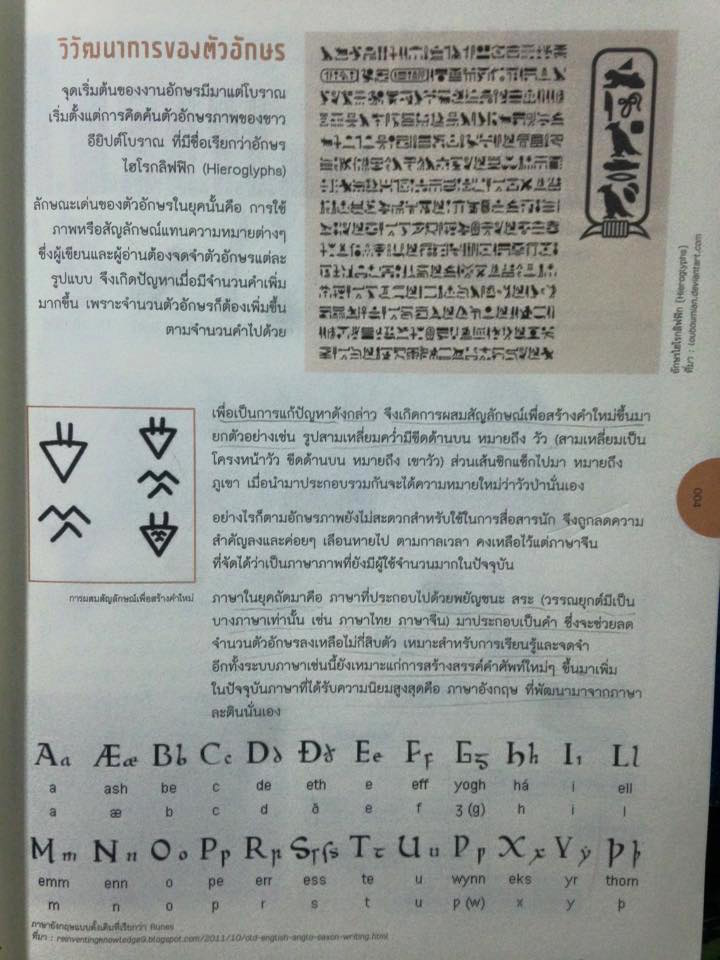 วิวัฒนาการของตัวอักษร
จุดเริ่มต้นของงานอักษรมีมาแต่โบราณ
เริ่มตั้งแต่การคิดค้นตัวอักษรภาพของชาว
อียิปต์โบราณ ที่มีชื่อเรียกว่าอักษร
ไฮโรกลิฟฟิก (Hieroglyphs)
ลักษณะเด่นของตัวอักษรในยุคนั้นคือ การใช้
ภาพหรือสัญลักษณ์แทนความหมายต่างๆ
ซึ่งผู้เขียนและผู้อ่านต้องจดจำตัวอักษรแต่ละ
รูปแบบ จึงเกิดปัญหาเมื่อมีจำนวนคำเพิ่ม
มากขึ้น เพราะจำนวนตัวอักษรก็ต้องเพิ่มขึ้น
ตามจำนวนคำไปด้วย
อักษรไฮโรกลิฟฟิก (Hieroglyphs)
ที่มา : loubouman.deviantart.com
เพื่อเป็นการแก้ปัญหาดังกล่าว จึงเกิดการผสมสัญลักษณ์เพื่อสร้างคำใหม่ขึ้นมา
ยกตัวอย่างเช่น รูปสามเหลี่ยมคว่ำมีขีดด้านบน หมายถึง วัว (สามเหลี่ยมเป็น
โครงหน้าวัว ขีดด้านบน หมายถึง เขาวัว) ส่วนเส้นซิกแซ็กไปมา หมายถึง
ภูเขา เมื่อนำมาประกอบรวมกันจะได้ความหมายใหม่ว่าวัวป่านั่นเอง
004
อย่างไรก็ตามอักษรภาพยังไม่สะดวกสำหรับใช้ในการสื่อสารนัก จึงถูกลดความ
สำคัญลงและค่อยๆ เลือนหายไป ตามกาลเวลา คงเหลือไว้แต่ภาษาจีน
ที่จัดได้ว่าเป็นภาษาภาพที่ยังมีผู้ใช้จำนวนมากในปัจจุบัน
การผสมสัญลักษณ์เพื่อสร้างคำใหม่
ภาษาในยุคถัดมาคือ ภาษาที่ประกอบไปด้วยพยัญชนะ สระ (วรรณยุกต์มีเป็น
บางภาษาเท่านั้น เช่น ภาษาไทย ภาษาจีน) มาประกอบเป็นคำ ซึ่งจะช่วยลด
จำนวนตัวอักษรลงเหลือไม่กี่สิบตัว เหมาะสำหรับการเรียนรู้และจดจำ
อีกทั้งระบบภาษาเช่นนี้ยังเหมาะแก่การสร้างสรรค์คำศัพท์ใหม่ๆ ขึ้นมาเพิ่ม
ในปัจจุบันภาษาที่ได้รับความนิยมสูงสุดคือ ภาษาอังกฤษ ที่พัฒนามาจากภาษา
ละตินนั่นเอง
Aa Ææ Bb Cc Dd Ðð Ee Ff Ᵹᵹ Hh Iı Ll
a ash be c de eth e eff yogh há i ell
a æ b c d ð e f ʒ (g) h i l
Mm Nn Oo Pp Rɼ Sſſs Tτ Uu Ƿƿ Xx Yẏ Þþ
emm enn o pe err ess te u wynn eks yr thorn
m n o p r s t u p (w) x y þ
ภาษาอังกฤษแบบดั้งเดิมที่เรียกว่า Runes
ที่มา : reinventingknowledge9.blogspot.com/2011/10/old-english-anglo-saxon-writing.html